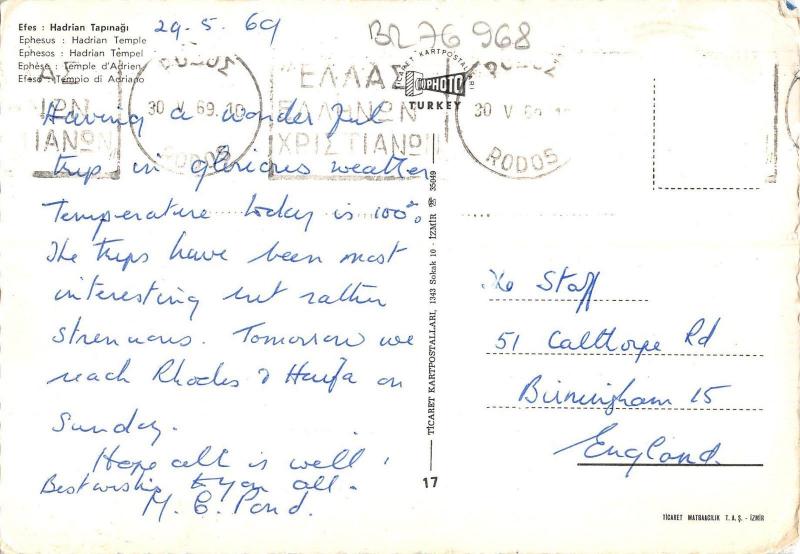 Efes : Hadrian Tapınağı
Ephesus : Hadrian Temple
Ephesos : Hadrian Tempel
Ephèse : Temple d'Adrien
Efeso : Tempio di Adriano
29-5-69
BR76968
TİCARET KARTPOSTALLARI
TURKEY
30 V 69.10
RODOS
ΕΛΛΑΣ
ΕΛΛΗΝΩΝ
ΧΡΙΣΤΙΑΝΩΝ
30 V 69.1
RODOS
Having a wonderful
trip in glorious weather
Temperature today is 100°.
The trips have been most
interesting but rather
strenuous. Tomorrow we
reach Rhodes & Haifa on
Sunday.
Hope all is well.
Best wishes to you all.
M. C. Pond.
TİCARET KARTPOSTALLARI, 1343 Sokak 10 - İZMİR ☎ 35049
17
The Staff
51 Calthorpe Rd
Birmingham 15
England
TİCARET MATBAACILIK T. A. Ş. - İZMİR